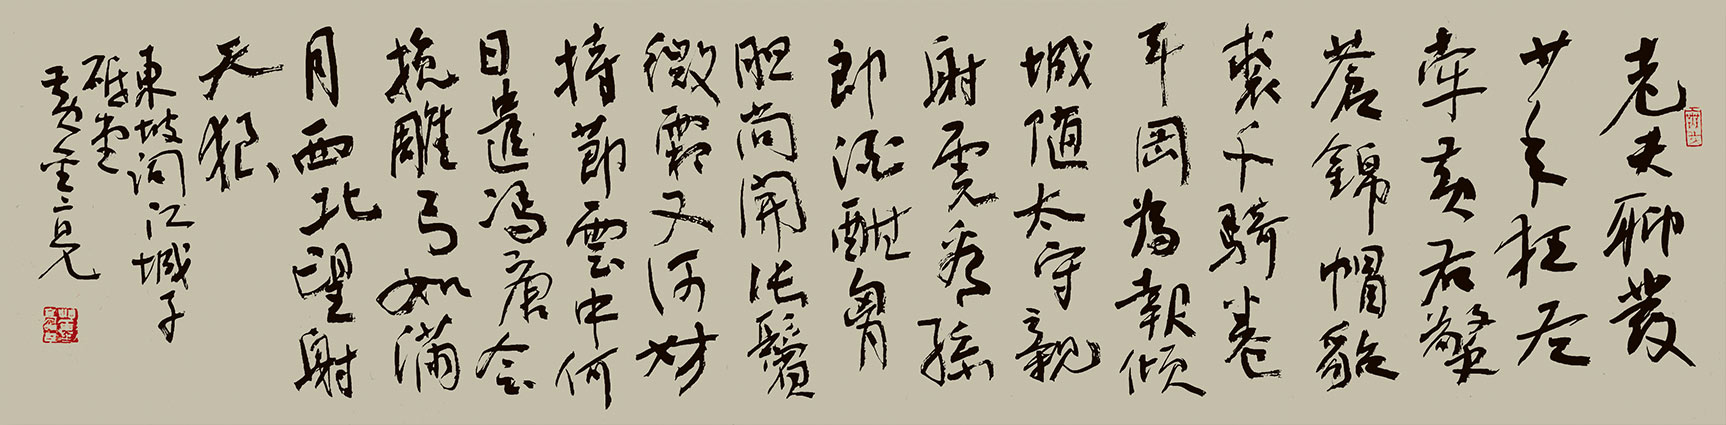 老夫聊發
少年狂左
牽黃右擎
蒼錦帽貂
裘千騎卷
平岡為報傾
城隨太守親
射虎看孫
郎酒酣胸
胆尚開張鬢
微霜又何妨
持節雲中何
日遣馮唐會
挽雕弓如滿
月西北望射
天狼
東坡詞江城子
黃金亮